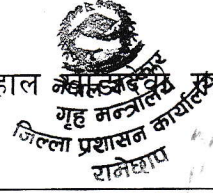 हाल
नेपाल सरकार
गृह मन्त्रालय
जिल्ला प्रशासन कार्यालय
रामेछाप